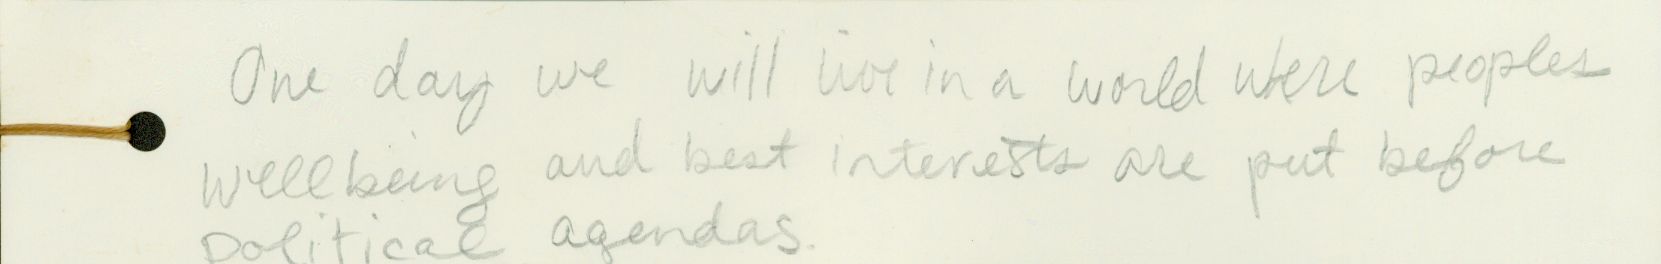 One day we will live in a world where peoples
wellbeing and best interests are put before
political agendas.